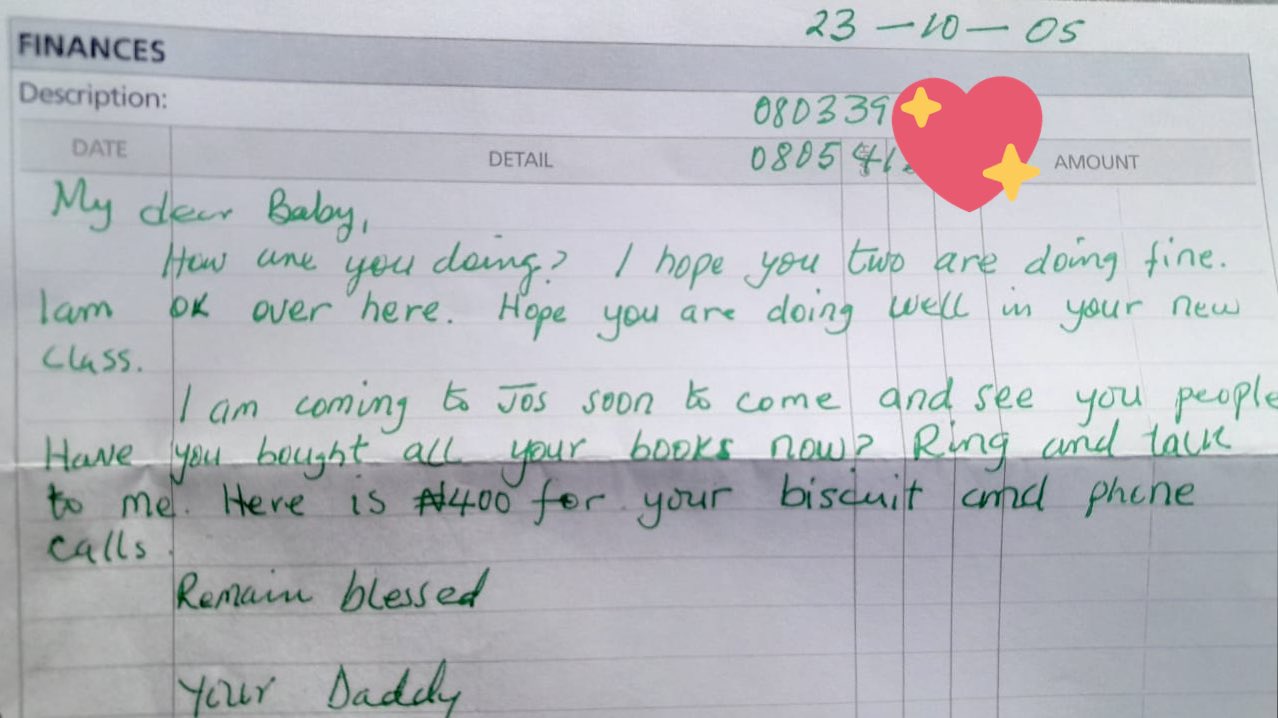 23-10-05
FINANCES
Description:
080339
DATE DETAIL 0805 AMOUNT
My dear Baby,
How are you doing? I hope you two are doing fine.
I am OK over here. Hope you are doing well in your new
class.
I am coming to Jos soon to come and see you people
Have you bought all your books now? Ring and talk
to me. Here is ₦400 for your biscuit and phone
calls.
Remain blessed
Your Daddy